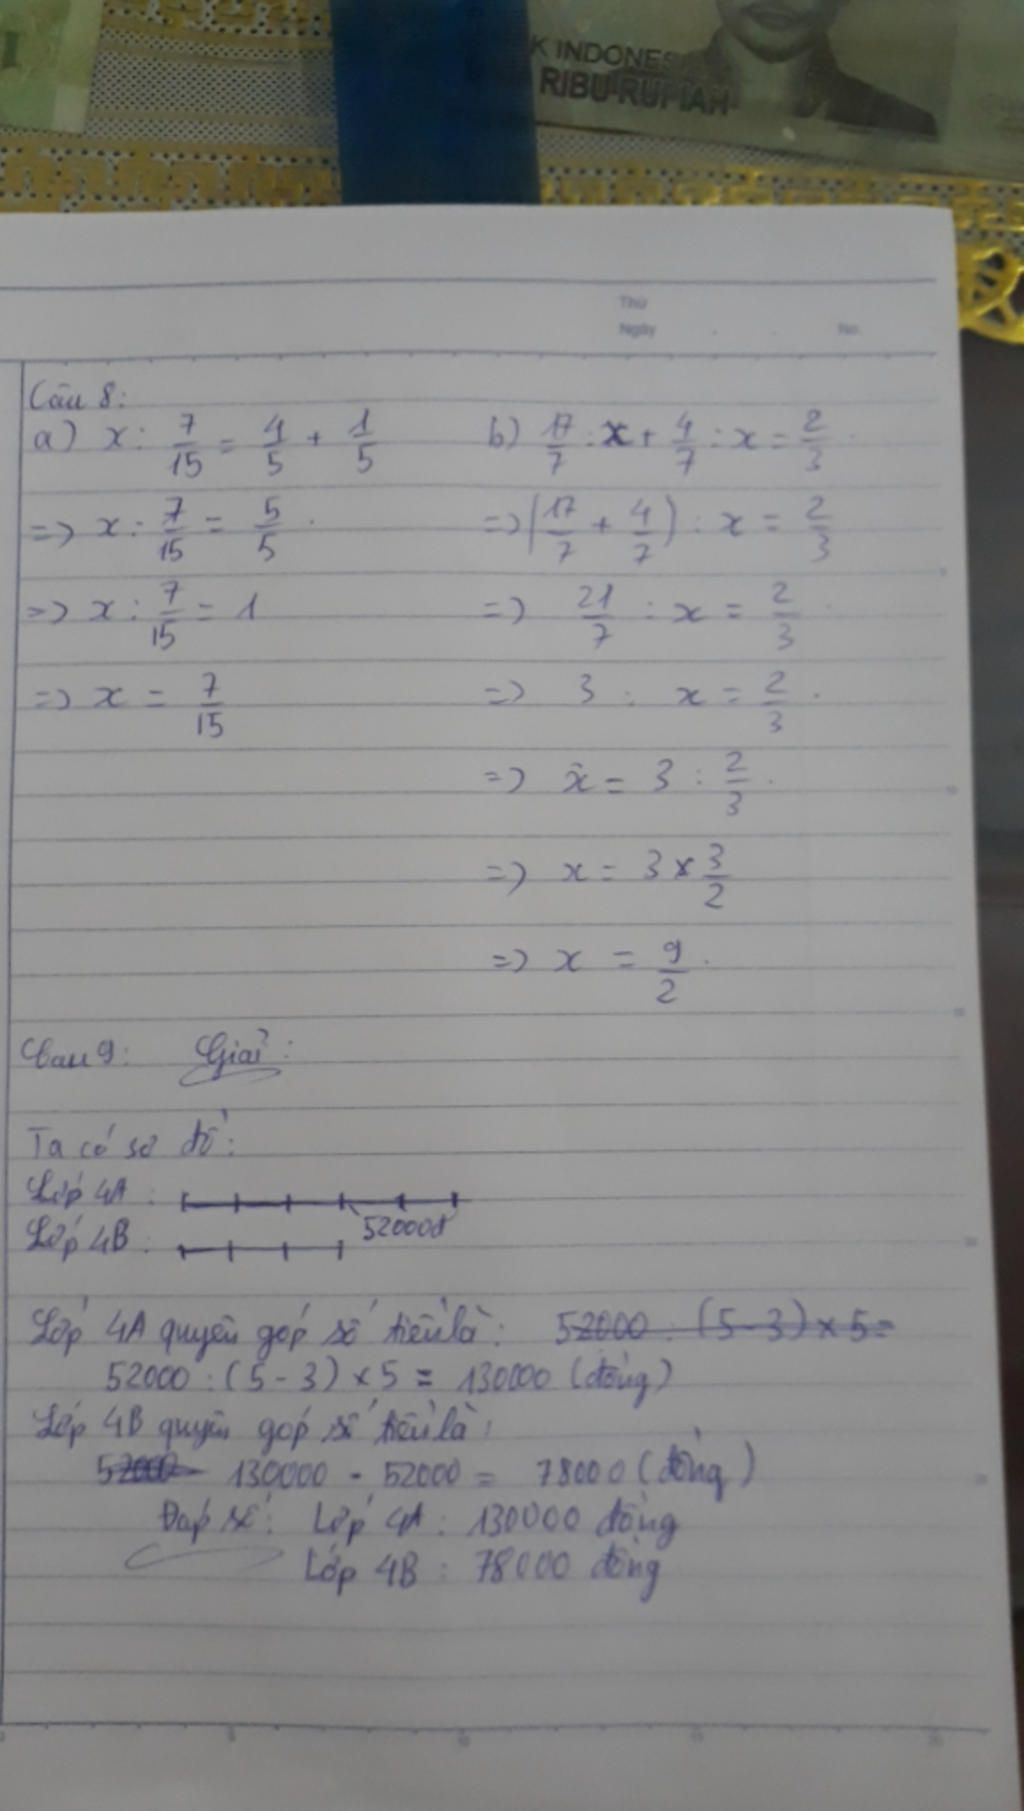 K INDONES
RIBU RUPIAH
Thứ
Ngày No.
Câu 8:
a) x : 7/15 = 4/5 + 1/5
=> x : 7/15 = 5/5 .
=> x : 7/15 = 1
=> x = 7/15
b) 17/7 : x + 4/7 : x = 2/3 .
=> (17/7 + 4/7) : x = 2/3
=> 21/7 : x = 2/3 .
=> 3 : x = 2/3 .
=> x = 3 : 2/3 .
=> x = 3 × 3/2
=> x = 9/2 .
Câu 9: Giải:
Ta có sơ đồ:
Lớp 4A :
52000đ
Lớp 4B :
Lớp 4A quyên góp số tiền là: 52000 : (5-3) × 5 =
52000 : (5 - 3) × 5 = 130000 (đồng)
Lớp 4B quyên góp số tiền là:
52000 130000 - 52000 = 78000 (đồng)
Đáp số: Lớp 4A : 130000 đồng
Lớp 4B : 78000 đồng